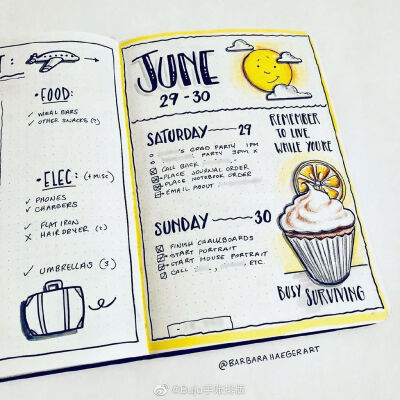 T:
• FOOD:
✓ MEAL BARS
✓ OTHER SNACKS (?)
• ELEC: (+ MISC)
✓ PHONES
✓ CHARGERS
✓ FLAT IRON
X HAIR DRYER (?)
✓ UMBRELLAS (3)
JUNE
29-30
SATURDAY 29
'S GOOD PARTY 1PM
PARTY 3PM X
CALL BACK
PLACE JOURNAL ORDER
PLACE NOTEBOOK ORDER
EMAIL ABOUT
SUNDAY 30
FINISH CHALKBOARDS
START PORTRAIT
START HOUSE PORTRAIT
CALL , , ETC.
REMEMBER
TO LIVE
WHILE YOU'RE
BUSY SURVIVING
@BARBARAHAEGERART
@Buju手账排版